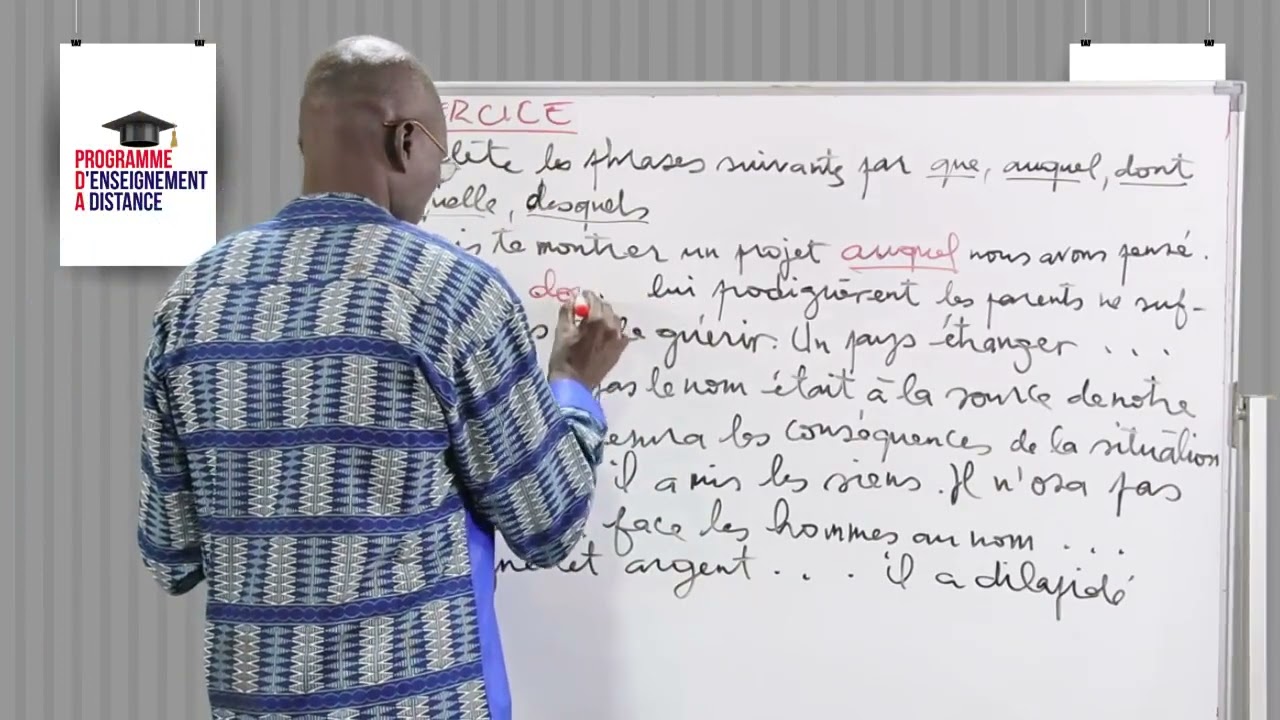 PROGRAMME
D'ENSEIGNEMENT
A DISTANCE
ERCICE
lète les phrases suivants par que, auquel, dont
quelle, desquels
is te montrer un projet auquel nous avons pensé.
lui prodiguèrent les parents ne suf-
guérir. Un pays étranger . . .
pas le nom était à la source de notre
esura les conséquences de la situation
il a mis les siens. Il n'osa pas
face les hommes au nom . . .
cet argent . . . il a dilapidé